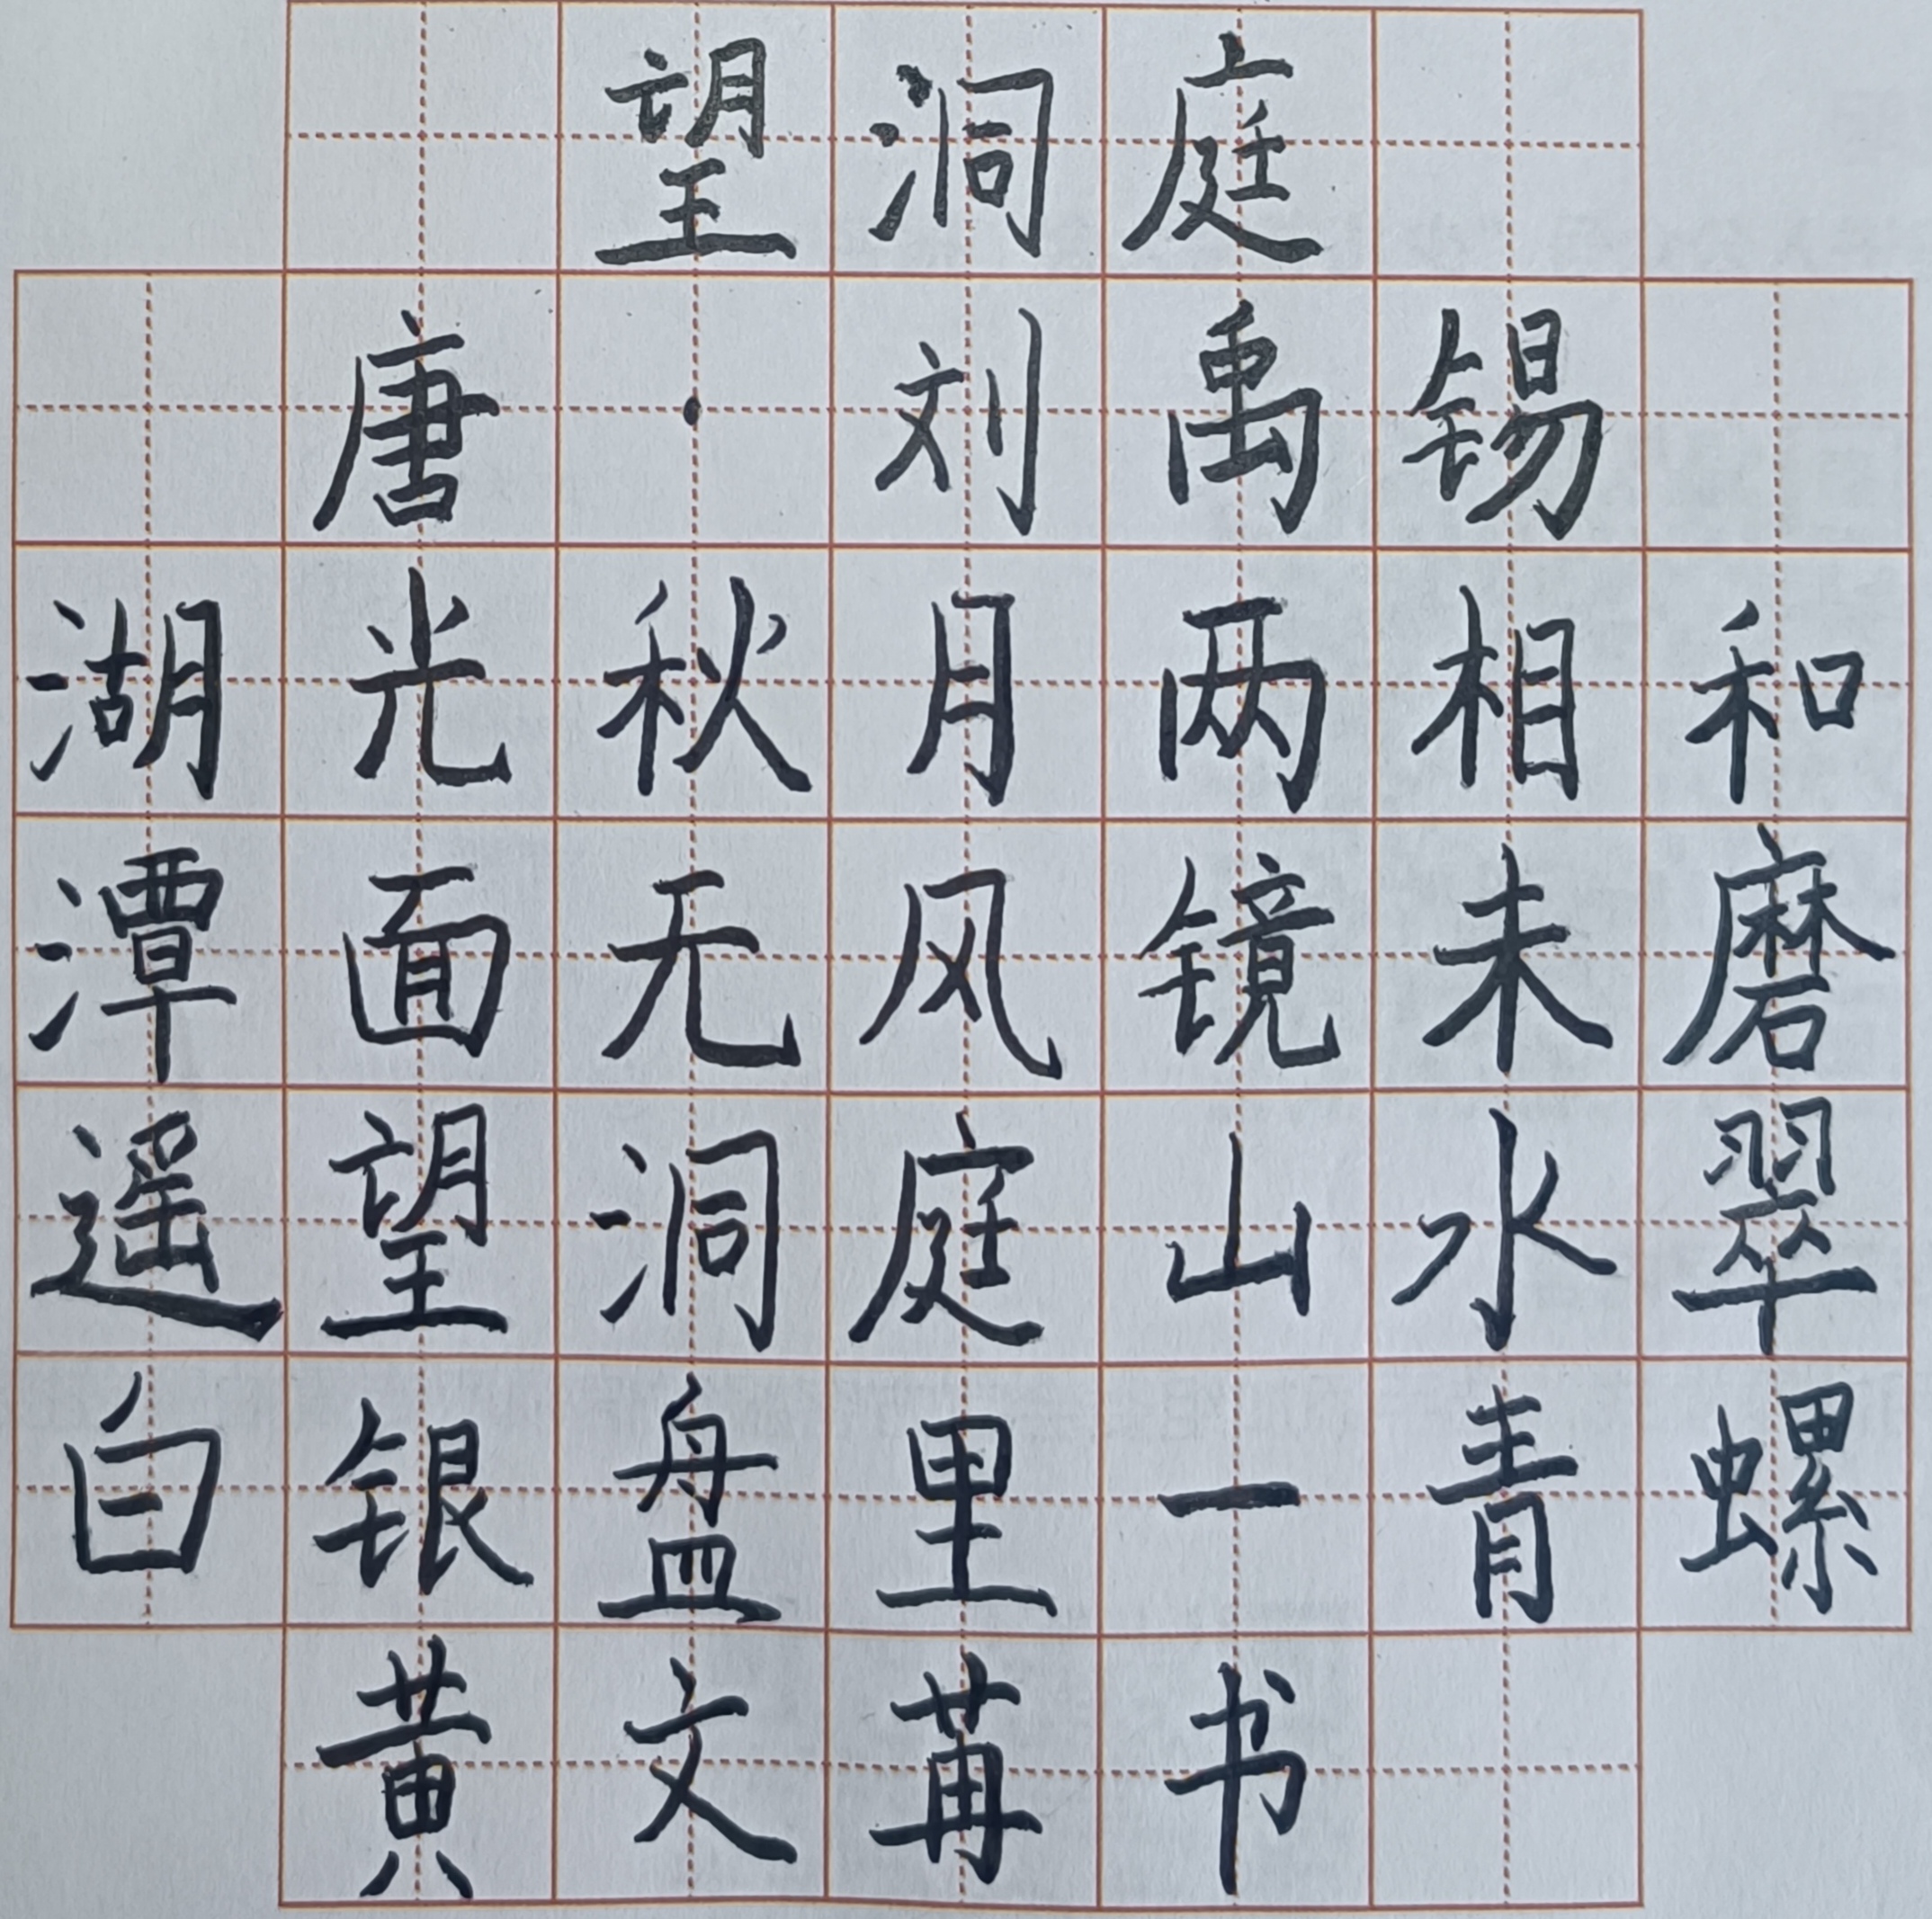 望洞庭
唐·刘禹锡
湖光秋月两相和
潭面无风镜未磨
遥望洞庭山水翠
白银盘里一青螺
黄文苒书